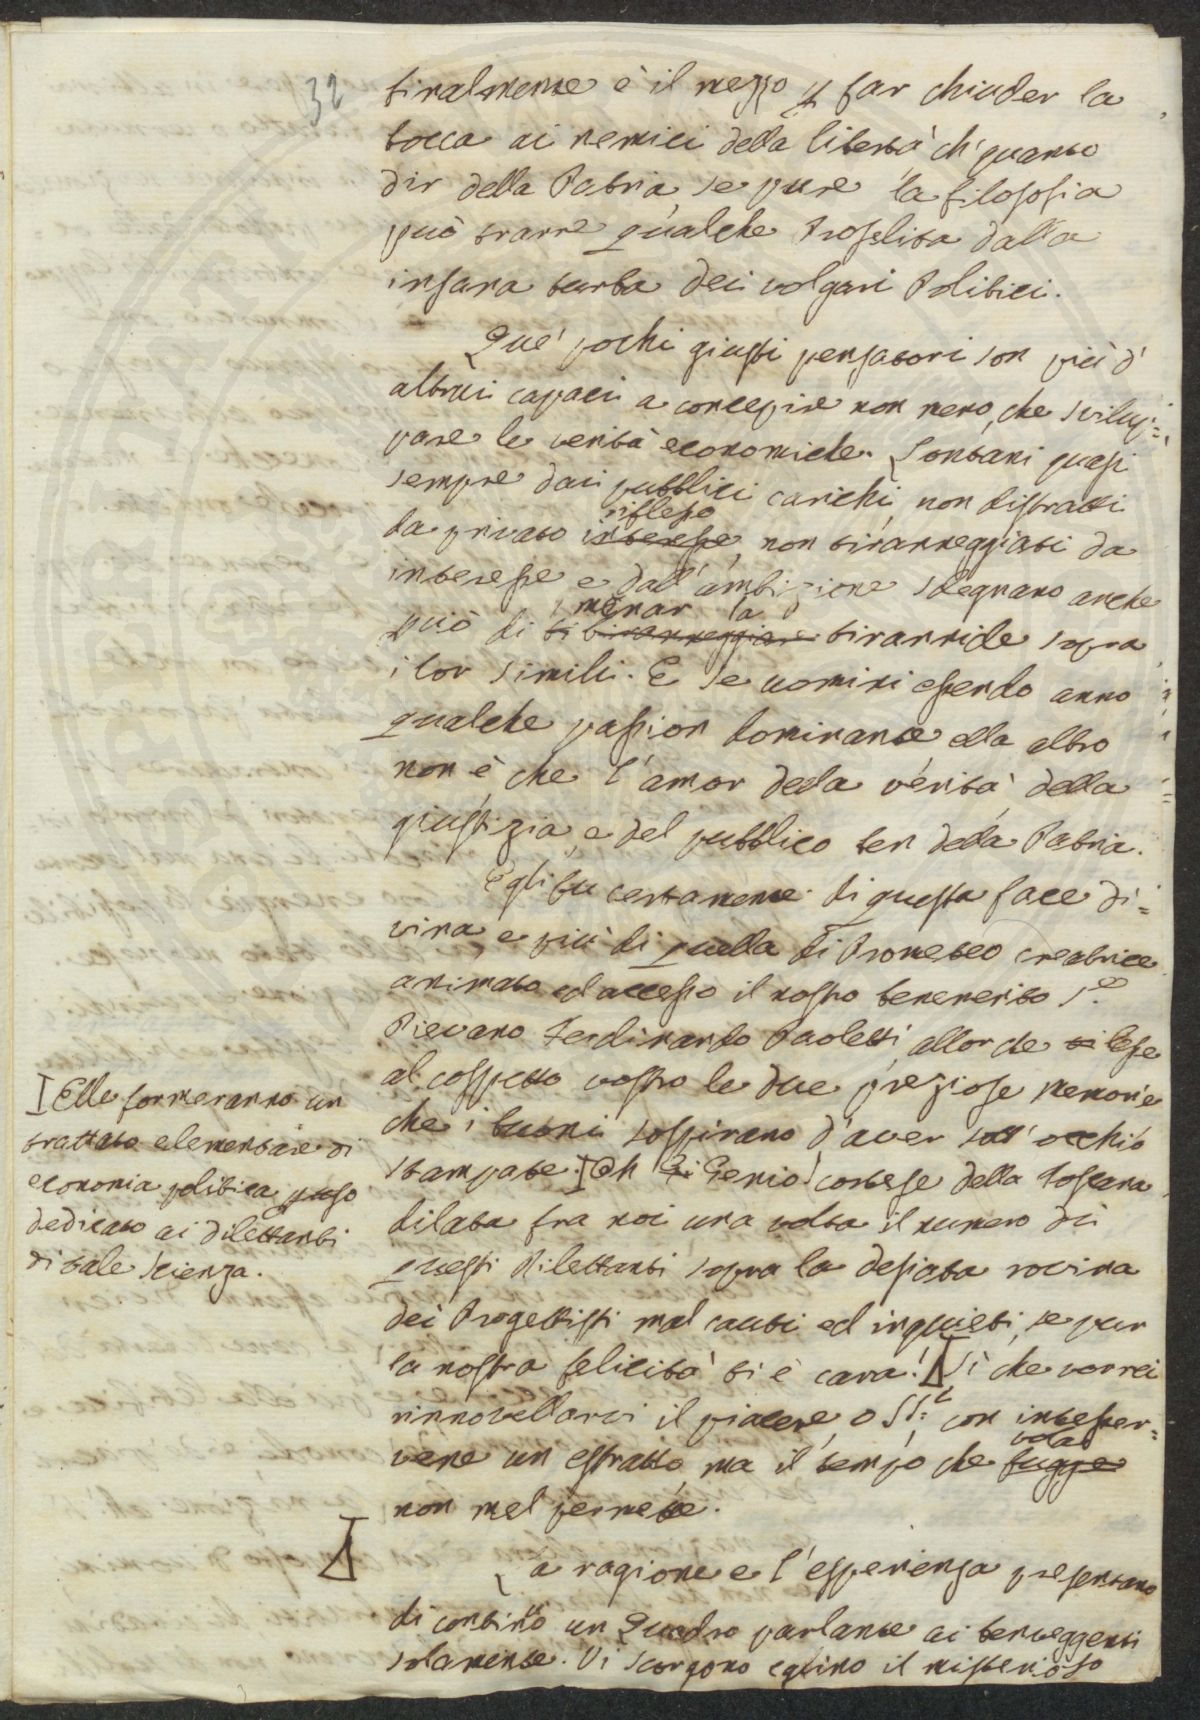 32
finalmente è il mezzo p far chiuder la
bocca ai nemici della libertà ch'è quanto
dir della Patria, se pure la filosofia
può trarre qualche Proselita dalla
insana turba dei volgari Politici.
Que' pochi giusti pensatori son più d'
altrui capaci a concepire non meno, che svilup=
pare le verità economiche. Lontani quasi
sempre dai pubblici carichi non distratti
riflesso
da privato interesse, non tiranneggiati da
interesse e dall'ambizione sdegnano anche
menar la
più di tiranneggiare tirannide sopra
i lor simili. E se uomini essendo anno
qualche passion dominante ella altro
non è che l'amor della verità, della
giustizia, e del pubblico ben della Patria.
Egli fu certamente di questa face di=
vina, e più di quella di Prometeo creatrice
animato ed accesso il nostro benemerito S.e
Pievano Ferdinando Paoletti, allor che lesse
al cospetto vostro le due preziose memorie
che i buoni sospirano d'aver sott'occhio
stampate. I Oh Genio cortese della Toscana
dilata fra noi una volta il numero di
questi Dilettanti sopra la desiata rovina
dei Progettisti mal cauti ed inquieti, se pur
la nostra felicità ti è cara! Sì che vorrei
rinnovellarvi il piacere, o SS:i con intesser=
volas
vene un estratto, ma il tempo che fugge
non mel permette.
La ragione e l'esperienza presentano
di continuo un Quadro parlante ai benveggenti
solamente. Vi scorgono eglino il misterioso
I Elle formeranno un
trattato elementare di
economia politica
dedicato ai dilettanti
di tale scienza.